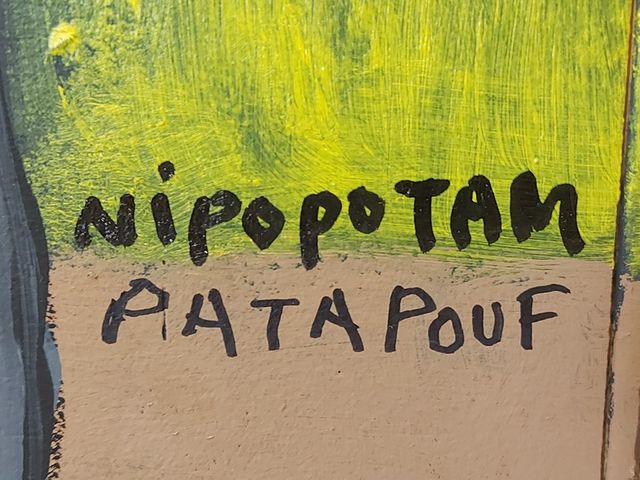 NiPOPOTAM
PATAPOUF